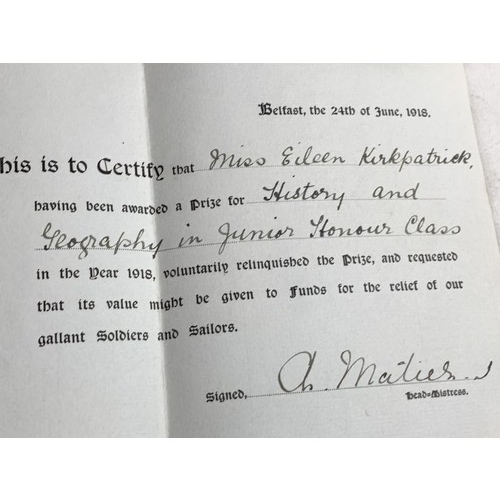 Belfast, the 24th of June, 1918.
his is to Certify that Miss Eileen Kirkpatrick,
having been awarded a Prize for History and
Geography in Junior Honour Class
in the Year 1918, voluntarily relinquished the Prize, and requested
that its value might be given to Funds for the relief of our
gallant Soldiers and Sailors.
Signed,
Head=Mistress.